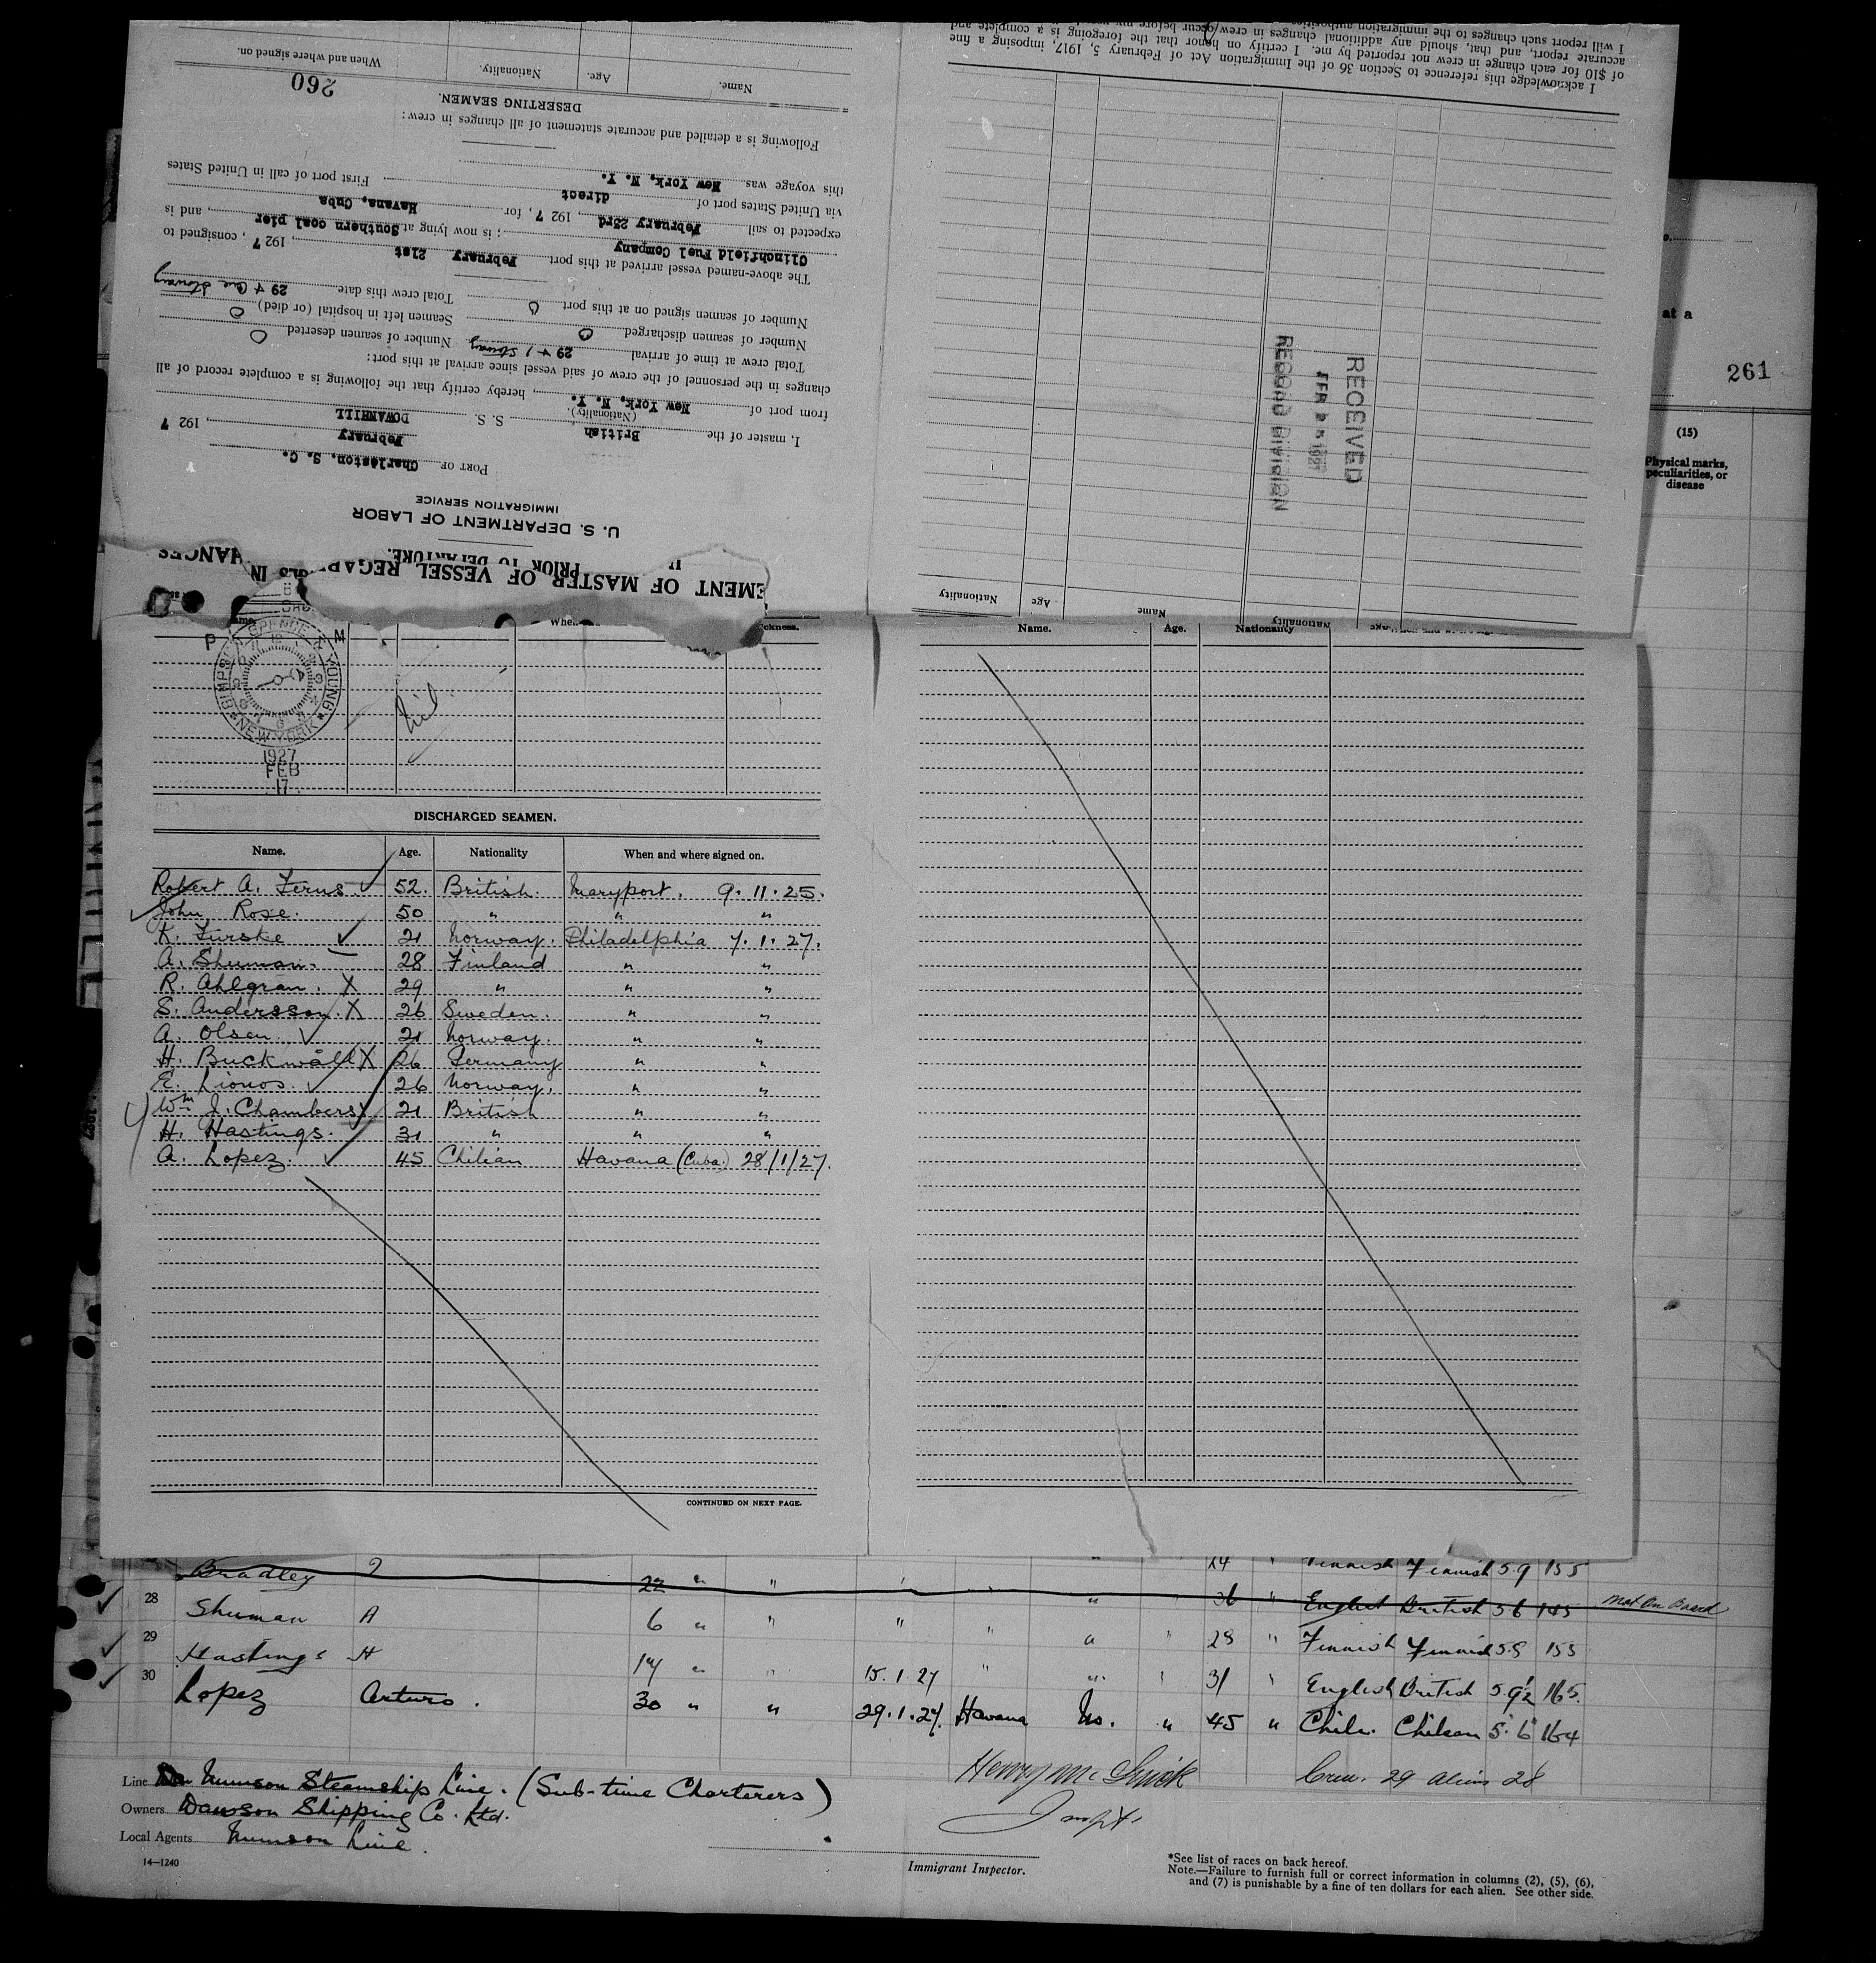 I will report such changes to the immigration authorities
accurate report, and that, should any additional changes in crew occur before my
of $10 for each change in crew not reported by me. I certify on honor that the foregoing is a complete and
I acknowledge this reference to Section 36 of the Immigration Act of February 5, 1917, imposing a fine
RECEIVED
FEB 25 1927
RECORD DIVISION
Name Age Nationality
Nationality
EMENT OF MASTER OF VESSEL REGAR IN HANGES
PRIOR TO DEPARTURE.
U. S. DEPARTMENT OF LABOR
IMMIGRATION SERVICE
PORT OF Charleston, S. C.
February , 1927
I, master of the British S. S. DOWANHILL
(Nationality)
from port of New York, N. Y. , hereby certify that the following is a complete record of all
changes in the personnel of the crew of said vessel since arrival at this port:
Total crew at time of arrival 29 & 1 stowaway Number of seamen deserted 0
Number of seamen discharged 0 Seamen left in hospital (or died) 0
Number of seamen signed on at this port 0 Total crew this date 29 & One stowaway
The above-named vessel arrived at this port February 21st , 1927, consigned to
Clinchfield Fuel Company ; is now lying at Southern coal pier , and is
expected to sail February 23rd , 1927, for Havana, Cuba
via United States port of direct First port of call in United States
this voyage was New York, N. Y.
Following is a detailed and accurate statement of all changes in crew:
DESERTING SEAMEN.
260
Name. Age. Nationality. When and where signed on.
at a
261
(15)
Physical marks,
peculiarities, or
disease
P M
SPENCER YOUNG
NEW YORK
1927
FEB
17
Nil
Name. Age. Nationality
DISCHARGED SEAMEN.
Name. Age. Nationality When and where signed on.
Robert A. Ferns 52. British. Maryport. 9.11.25.
John Rose. 50 " " "
K. Furske 21 Norway. Philadelphia 7.1.27.
A. Shuman. 28 Finland " "
R. Ahlgran. X 29 " " "
S. Andersson. X 26 Sweden. " "
A. Olsen. 21 Norway. " "
H. Buckwald X 26 Germany " "
E. Lionos. 26 Norway. " "
Wm J. Chambers 21 British " "
H. Hastings. 31 " " "
A. Lopez. 45 Chilian Havana (Cuba.) 28/1/27.
CONTINUED ON NEXT PAGE.
24 " Finnish Finnish 5.9 155
Bradley J 22 " " " " " 36 " English British 5 6 145 Not On Board
28 Shuman A 6 " " " " " " 28 " Finnish Finnish 5.8 153
29 Hastings H 14 " " 15.1.27 " " " 31 " English British 5.9½ 165.
30 Lopez Arturo. 30 " " 29.1.27. Havana No. " 45 " Chile. Chilean 5.6 164
Line Munson Steamship Line. (Sub-time Charterers)
Owners Dawson Shipping Co. Ltd.
Local Agents Munson Line.
14—1240
Crew. 29 Aliens 28
Inspt.
Immigrant Inspector.
*See list of races on back hereof.
Note.—Failure to furnish full or correct information in columns (2), (5), (6),
and (7) is punishable by a fine of ten dollars for each alien. See other side.